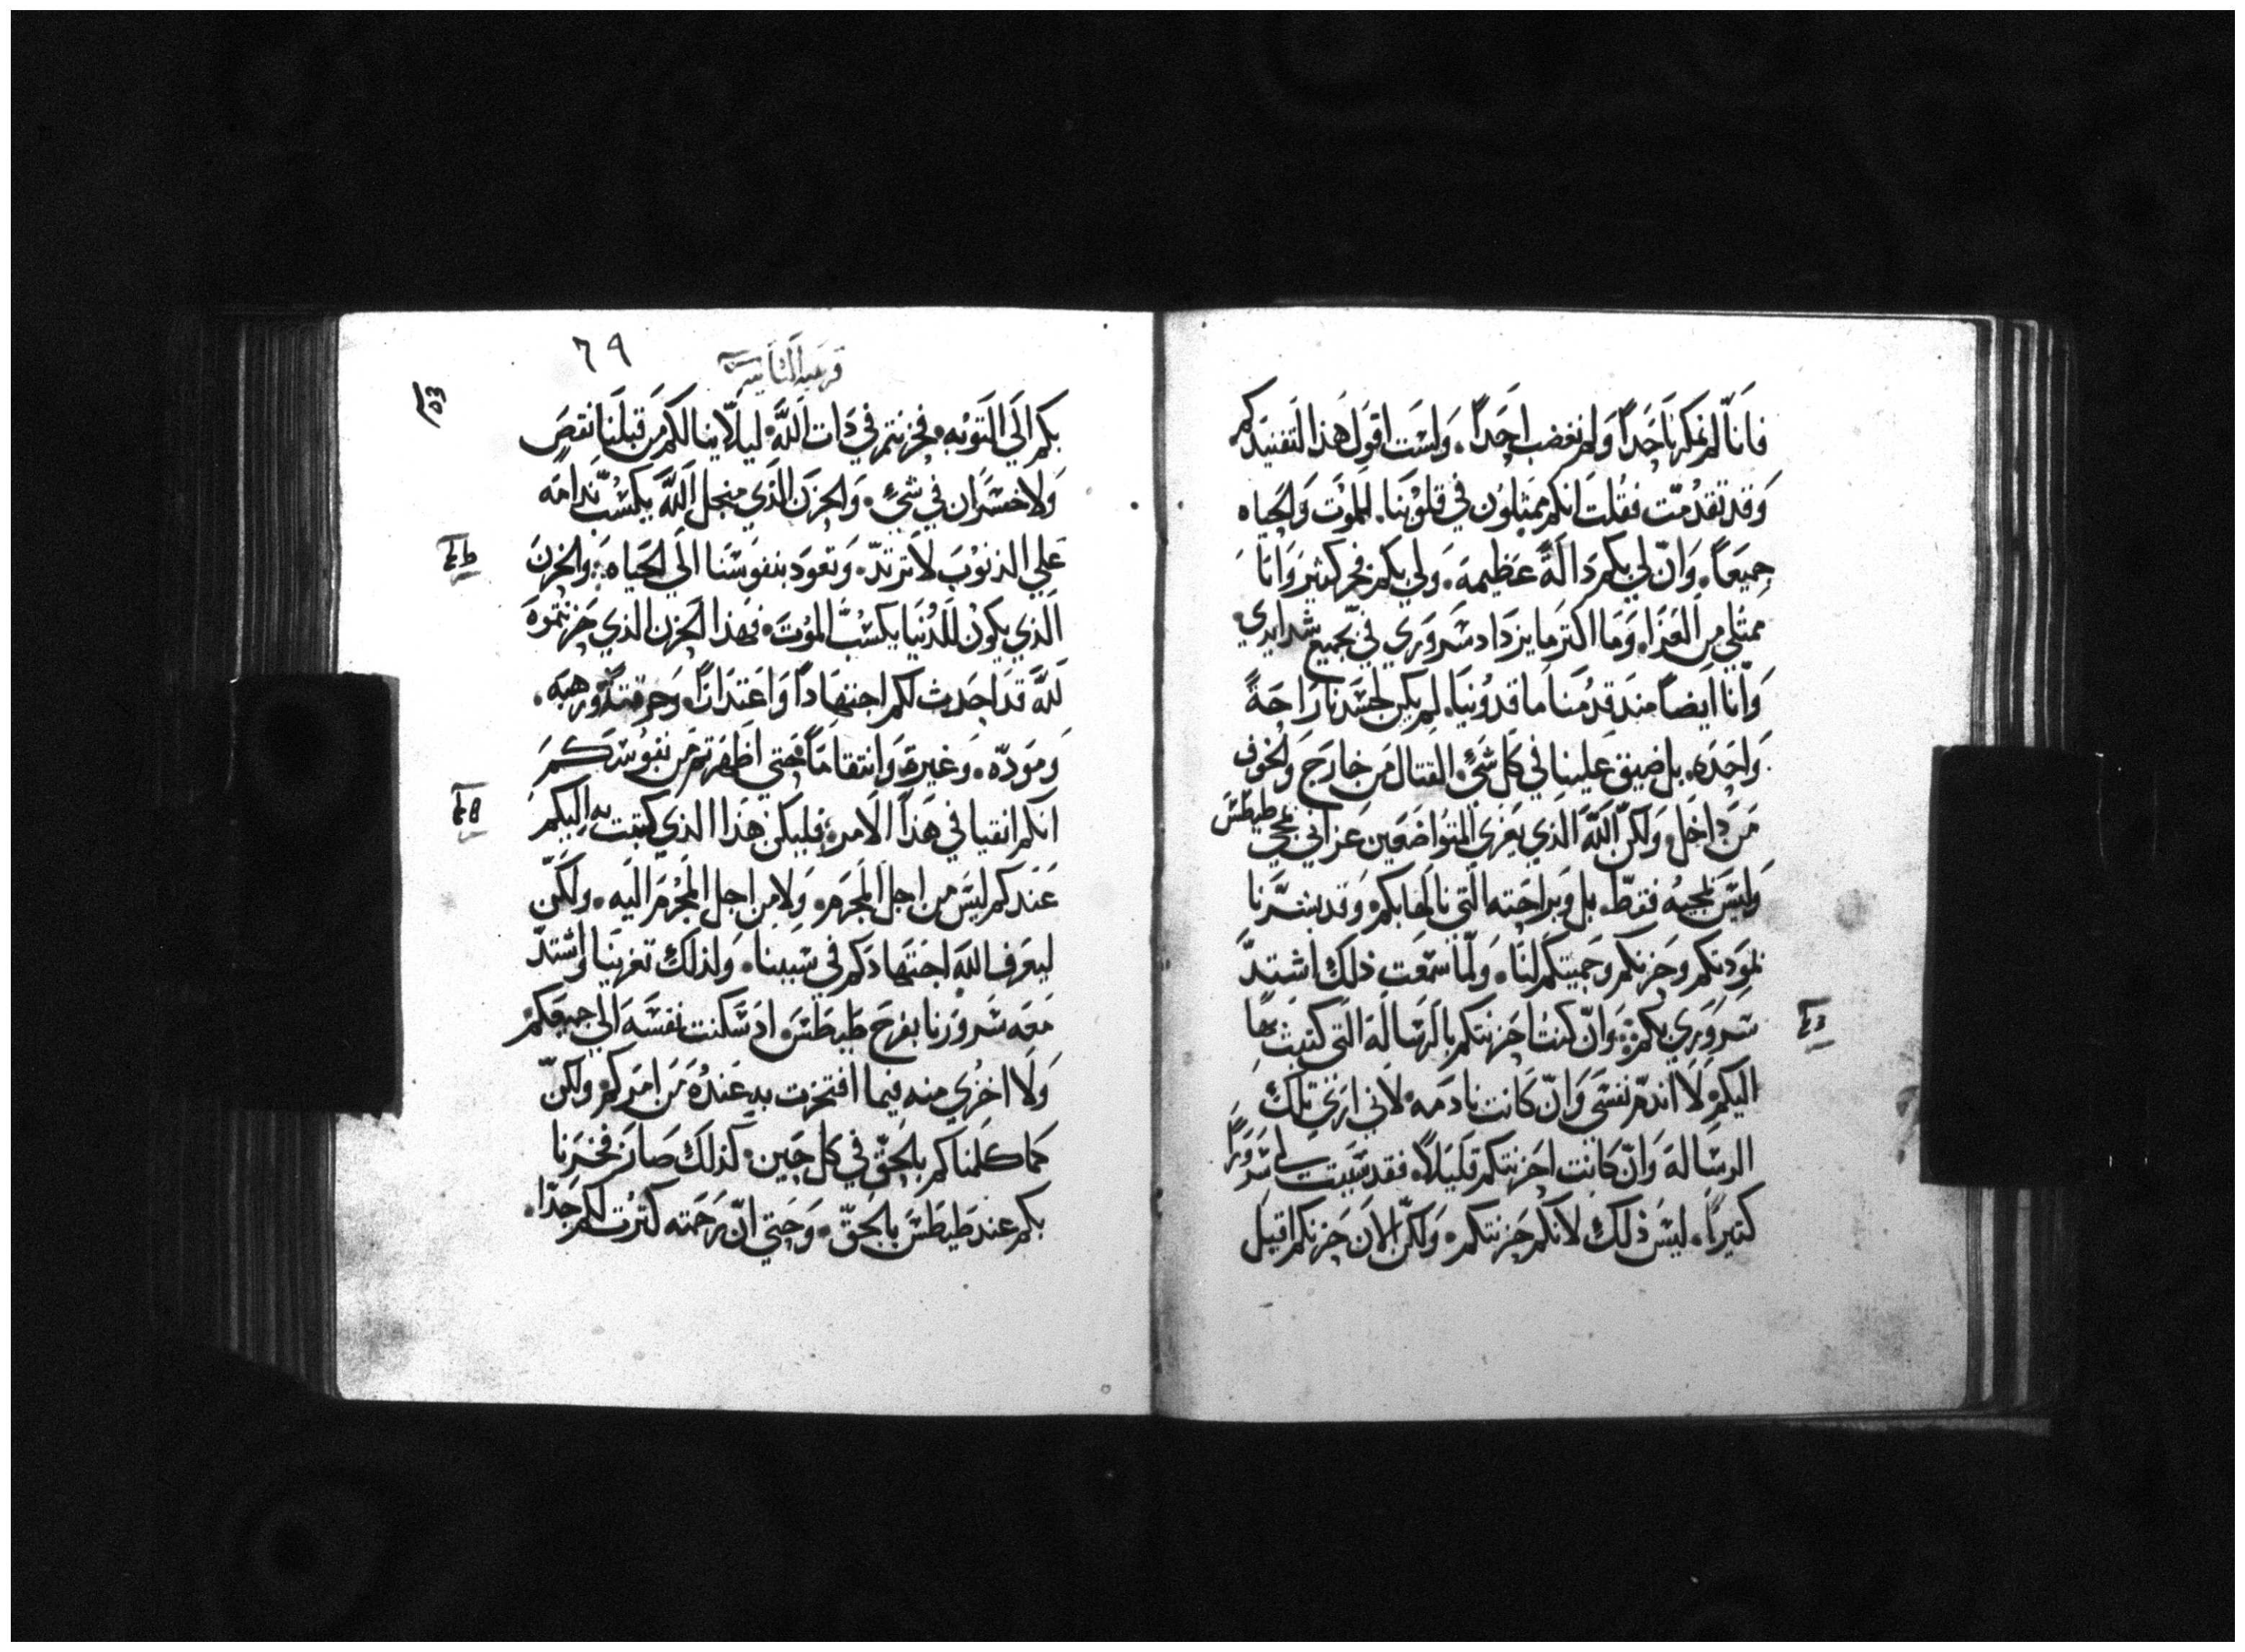 فانا لم نمكر باحداً ولم نغضب احداً. ولست اقول هذا لتفنيدكم
وقد تقدمت فقلت انكم ممثلون في قلوبنا. للموت والحياه
جميعاً. وان لي بكم دالة عظيمه. ولي بكم فخر كثير وانا
ممتلي من العزا. وما اكثر ما يزداد سروري في جميع شدايدي.
وانا ايضاً منذ قدمنا ماقدونيا. لم يكن لجسدنا راحة
واحده. بل ضيق علينا في كل شيء. القتال من خارج والخوف
من داخل. ولكن الله الذي يعزي المتواضعين عزاني بمجي طيطس
وليس بمجيه فقط. بل وبراحته التي نالها بكم. وقد بشرنا
بمودتكم وحزنكم وحميتكم لنا. ولما سمعت ذلك اشتد
سروري بكم. وان كنت احزنتكم بالرسالة التي كتبت بها
اليكم. لا اندم نفسي وان كانت نادمه. لاني اري تلك
الرساله وان كانت احزنتكم قليلاً. فقد سببت لي سروراً
كثيراً. ليس ذلك لانكم حزنتكم. ولكن الان حزنكم اقبل
٦٩
بكم الي التوبه. فحزنتم في ذات الله. ليلا ينالكم من قبلنا نقص
ولا خسران في شيء. والحزن الذي منجل الله يكسب ندامه
علي الذنوب لا ترتد. وتعود بنفوسنا الي الحياه. والحزن
الذي يكون للدنيا يكسب الموت. فهذا الحزن الذي حزنتموه
لله قد احدث لكم اجتهاداً واعتذاراً. وحرقة ورهبه.
ومودّه. وغيره. وانتقاماً. حتي اظهرتم من نفوسكم
انكم انقيا في هذا الامر. فليكن هذا الذي كتبت به اليكم
عندكم ليس من اجل المجرم. ولا من اجل المجرم اليه. ولكن
ليعرف الله اجتهادكم في سببنا. ولذلك تعزينا واشتد
معه سرورنا بفرح طيطس. اذ سكنت نفسه الي جميعكم
ولا اخزي منه فيما افتخرت به عنده من امركم. ولكن
كما كلمناكم بالحق في كل حين. كذلك صار فخرنا
بكم عند طيطس بالحق. وحتي ان رحمته كثرت لكم جدا.